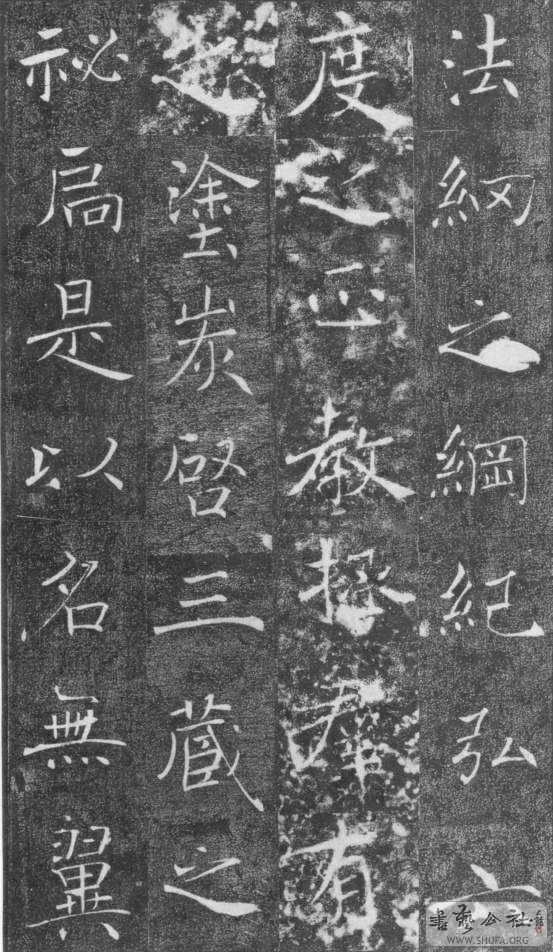 法網之綱紀弘六
度之正教拯群有
之塗炭啓三藏之
祕扃是以名無翼
書藝公社
WWW.SHUFA.ORG